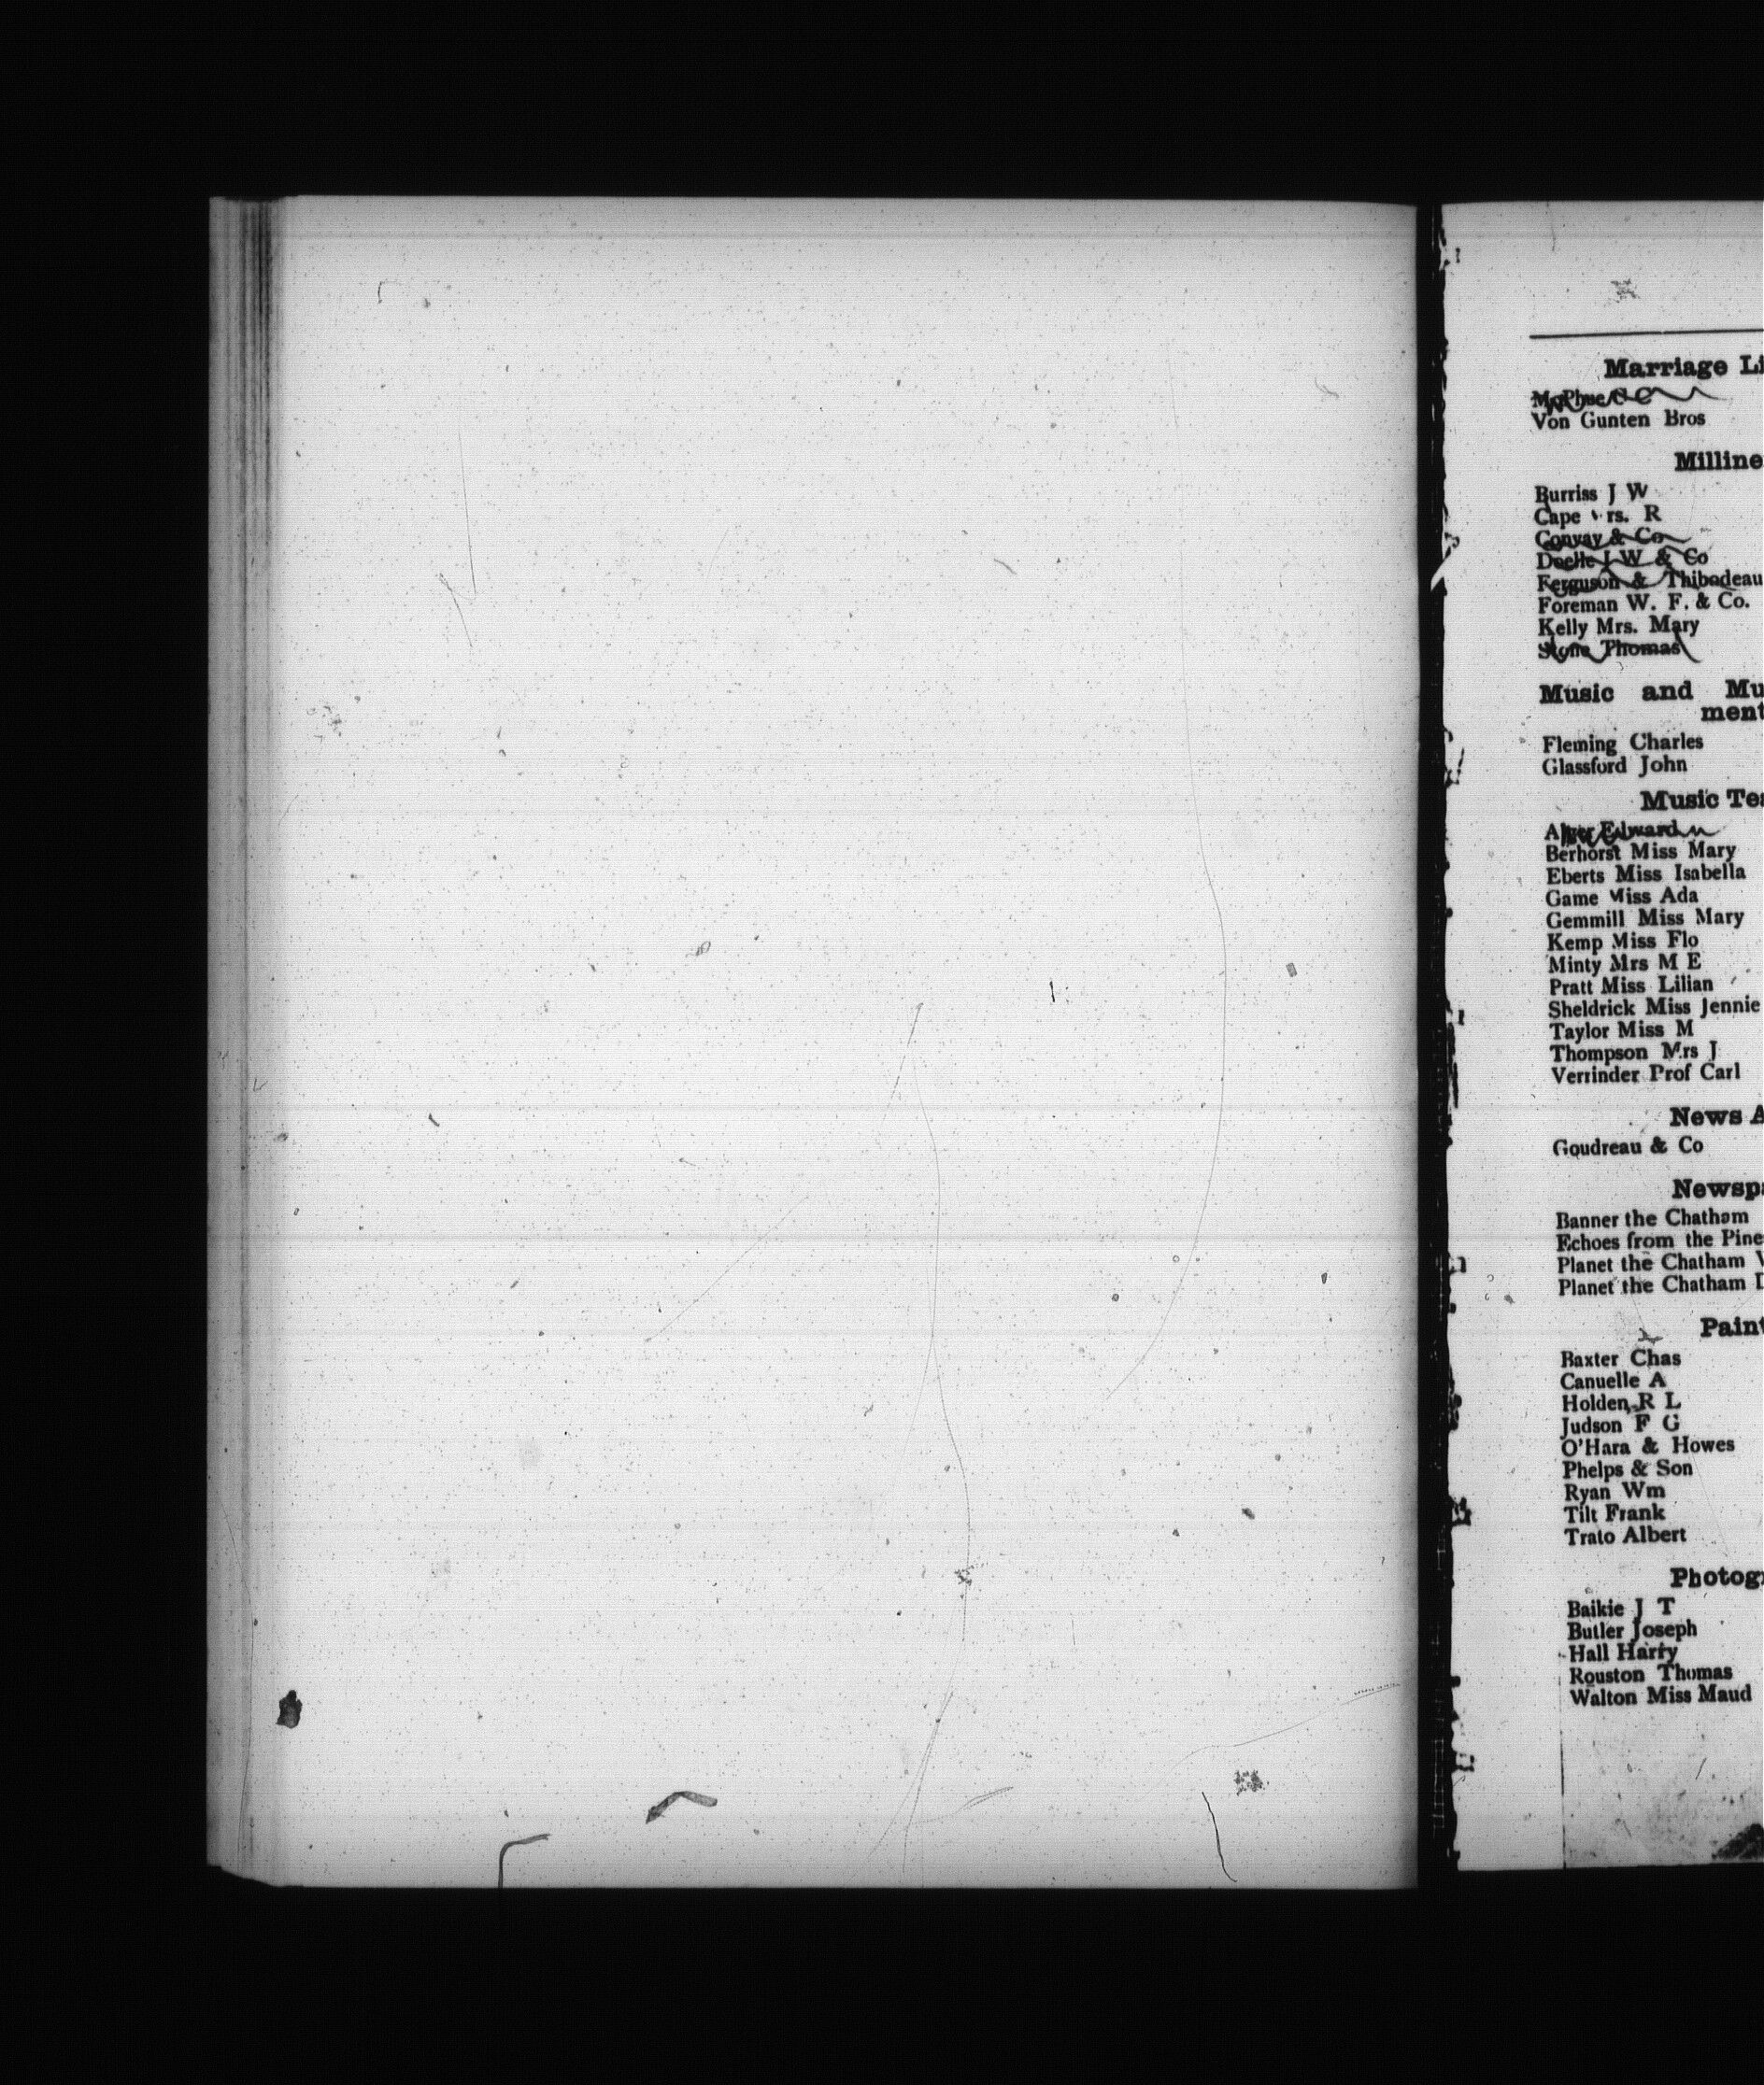 Marriage Li
Von Gunten Bros
Milline
Burriss J W
Cape rs. R
Convay & Co
Doelle J W & Co
Ferguson & Thibodeau
Foreman W. F. & Co.
Kelly Mrs. Mary
Stone Thomas
Music and Mu
ment
Fleming Charles
Glassford John
Music Tea
Alger Edward
Berhorst Miss Mary
Eberts Miss Isabella
Game Miss Ada
Gemmill Miss Mary
Kemp Miss Flo
Minty Mrs M E
Pratt Miss Lilian
Sheldrick Miss Jennie
Taylor Miss M
Thompson Mrs J
Verrinder Prof Carl
News A
Goudreau & Co
Newspa
Banner the Chatham
Echoes from the Pine
Planet the Chatham
Planet the Chatham D
Paint
Baxter Chas
Canuelle A
Holden R L
Judson F G
O'Hara & Howes
Phelps & Son
Ryan Wm
Tilt Frank
Trato Albert
Photogr
Baikie J T
Butler Joseph
Hall Harry
Rouston Thomas
Walton Miss Maud